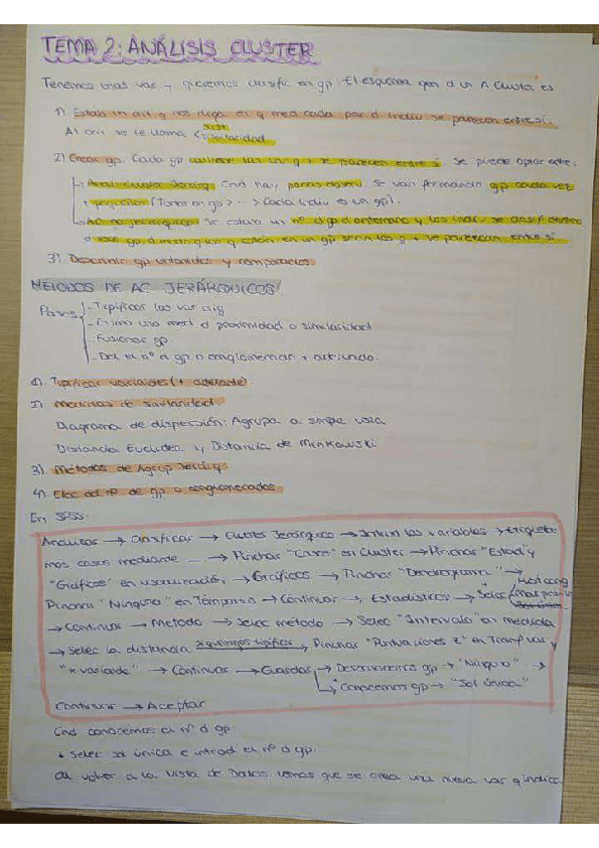 TEMA 2: ANÁLISIS CLUSTER
Tenemos unas var y queremos clasific en gp. El esquema gen d un A Cluster es
1) Establ un crit q nos diga en q med cada par d indiv se parecen entre sí.
Al crit se le llama similaridad
2) Crear gp. Cada gp los q + se parecen entre sí. Se puede optar entre:
Anal Cluster Jerárq. Cnd hay pocos datos. Se van formando gp cada vez
+ pequeños (Todos en gp > ... > Cada indiv es un gp).
AC no jerárquico: Se establ un nº d gp d antemano y los indiv se clasif dentro
d esos gp d manera q los q están en un gp sean los q + se parezcan entre sí.
3) Describir gp obtenidos y compararlos.
METODOS DE AC JERÁRQUICOS:
Pasos
- Tipificar las var orig
- Elimo una med d proximidad o similaridad
- Fusionar gp
- Det el nº d gp o conglomeran + adecuado.
1) Tipificar variables (+ adelante)
2) Medidas de similaridad.
Diagrama de dispersión: Agrupa a simple vista
Distancia Euclidea y Distancia de Minkowski
3) Métodos de Agrup Jerárq
4) Elec del nº de gp o conglomerados
En SPSS:
Analizar → Clasificar → Cluster Jerárquico → Introd las variables → Etiqueta-
mos casos mediante ... → Pinchar "Casos" en Cluster → Pinchar "Estad y
"Gráficos" en visualización → Gráficos → Pinchar "Dendrograma" →
Pinchar "Ninguno" en Témpanos → Continuar → Estadísticos → Selec Hist cong
→ Continuar → Metodo → Selec método → Selec "Intervalo" en medida
→ Selec la distancia si queremos tipificar → Pinchar "Puntuaciones Z" en Transf val y
"x variable" → Continuar → Guardar → Desconocemos gp → "Ninguno" →
→ Conocemos gp → "Sol única"
Continuar → Aceptar
Cnd conocemos el nº d gp:
Selec sol única e introd el nº d gp.
Al volver a la Vista de Datos vemos que se crea una nueva var q indica